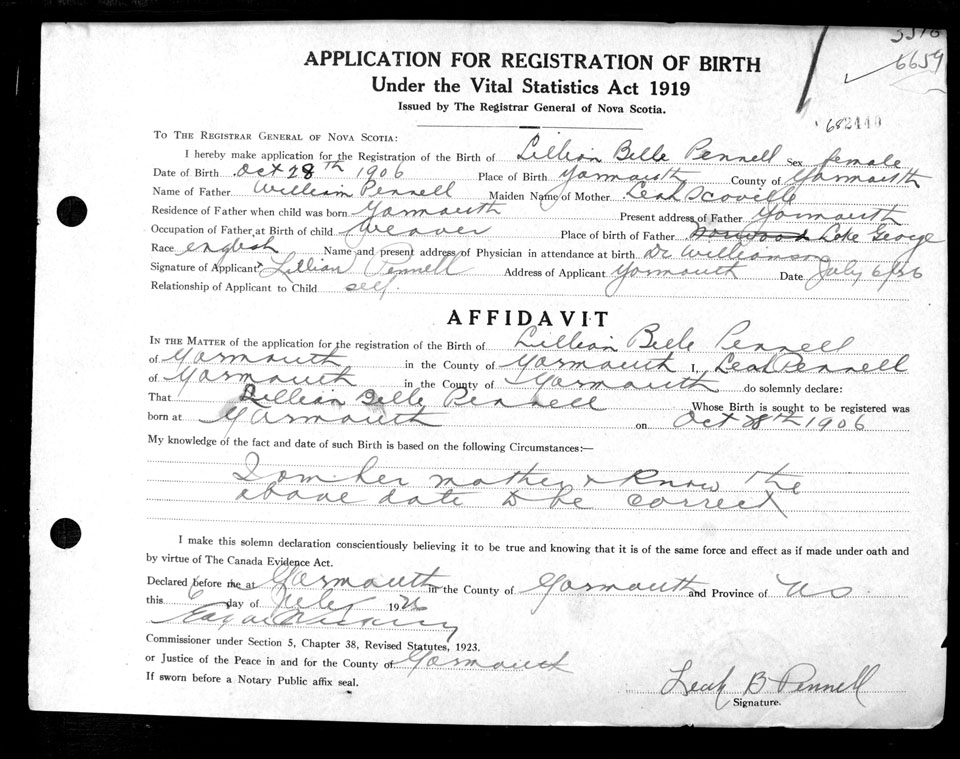 5659
APPLICATION FOR REGISTRATION OF BIRTH
Under the Vital Statistics Act 1919
Issued by The Registrar General of Nova Scotia.
682440
TO THE REGISTRAR GENERAL OF NOVA SCOTIA:
I hereby make application for the Registration of the Birth of Lillian Belle Pennell Sex female
Date of Birth Oct 28th 1906 Place of Birth Yarmouth County of Yarmouth
Name of Father William Pennell Maiden Name of Mother Leah Scoville
Residence of Father when child was born Yarmouth Present address of Father Yarmouth
Occupation of Father at Birth of child Weaver Place of birth of Father Norwood Lake George
Race english Name and present address of Physician in attendance at birth Dr Williamson
Signature of Applicant Lillian Pennell Address of Applicant Yarmouth Date July 6/26
Relationship of Applicant to Child self.
AFFIDAVIT
IN THE MATTER of the application for the registration of the Birth of Lillian Belle Pennell
of Yarmouth in the County of Yarmouth I, Leah Pennell
of Yarmouth in the County of Yarmouth do solemnly declare:
That Lillian Belle Pennell Whose Birth is sought to be registered was
born at Yarmouth on Oct 28th 1906
My knowledge of the fact and date of such Birth is based on the following Circumstances:—
I am her mother & Know the
above date to be correct
I make this solemn declaration conscientiously believing it to be true and knowing that it is of the same force and effect as if made under oath and
by virtue of The Canada Evidence Act.
Declared before me at Yarmouth in the County of Yarmouth and Province of NS
this 6 day of July 1926
Commissioner under Section 5, Chapter 38, Revised Statutes, 1923.
or Justice of the Peace in and for the County of Yarmouth
If sworn before a Notary Public affix seal.
Leah B Pennell
Signature.